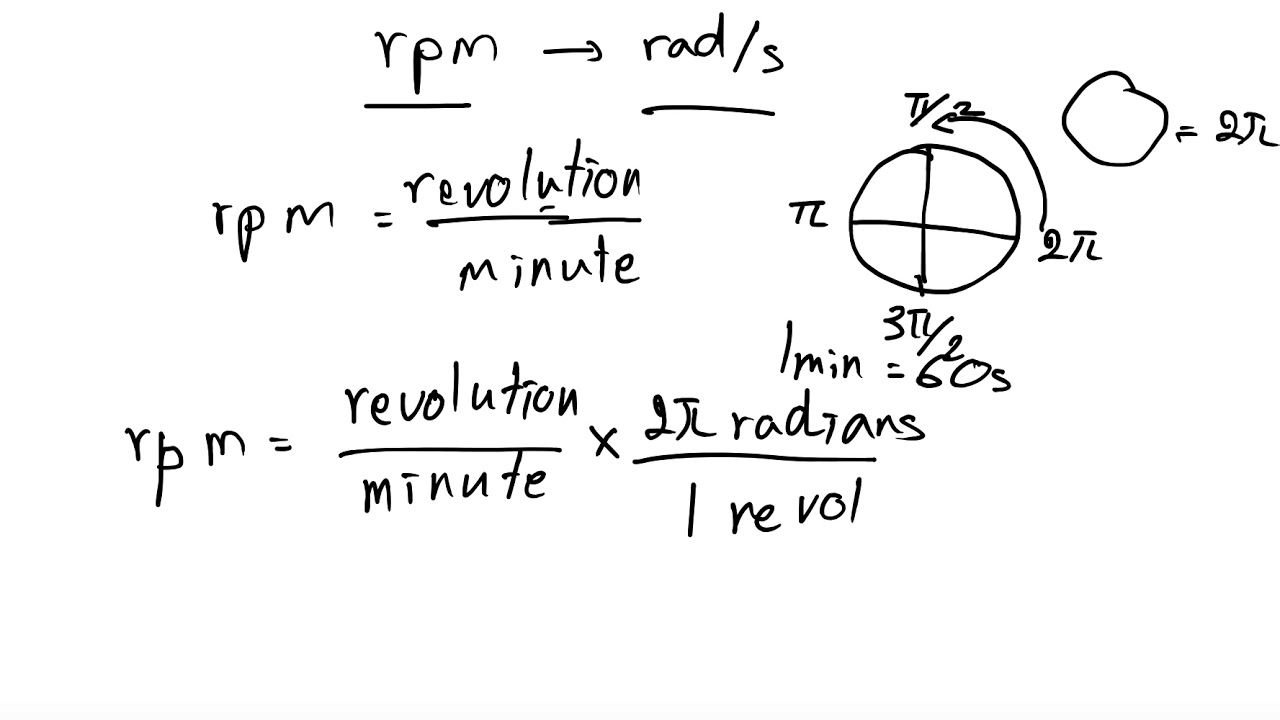 rpm → rad/s
π/2
= 2π
rpm = revolution / minute
π
2π
3π/2
1min = 60s
rpm = revolution / minute × 2π radians / 1 revol